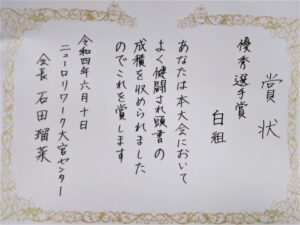 賞状
優秀選手賞
白組
あなたは本大会において
よく健闘され頭書の
成績を収められました
のでこれを賞します
令和四年六月十日
ニューロリワーク大宮センター
会長 石田 瑠菜